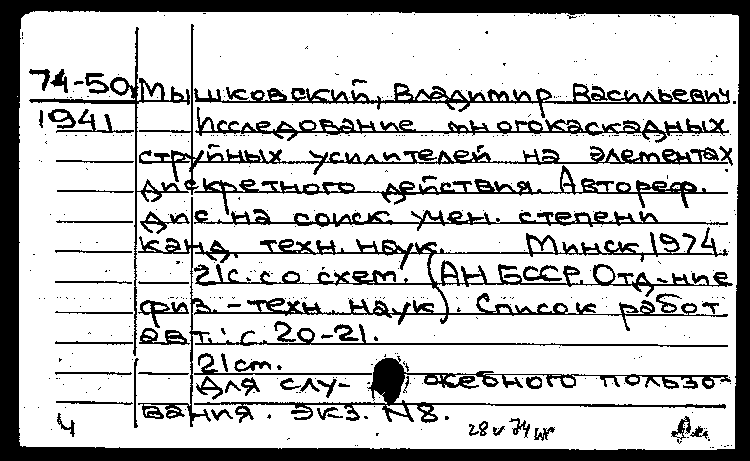 74-50 Мышковский, Владимир Васильевич.
1941 Исследование многокаскадных
струйных усилителей на элементах
дискретного действия. Автореф.
дис. на соиск. учен. степени
канд. техн. наук. Минск, 1974.
21с. со схем. (АН БССР. Отд-ние
физ.-техн. наук). Список работ
авт.: с. 20-21.
21 см.
Для слу- жебного пользо-
вания. Экз. N8.
Ч 28 v 74